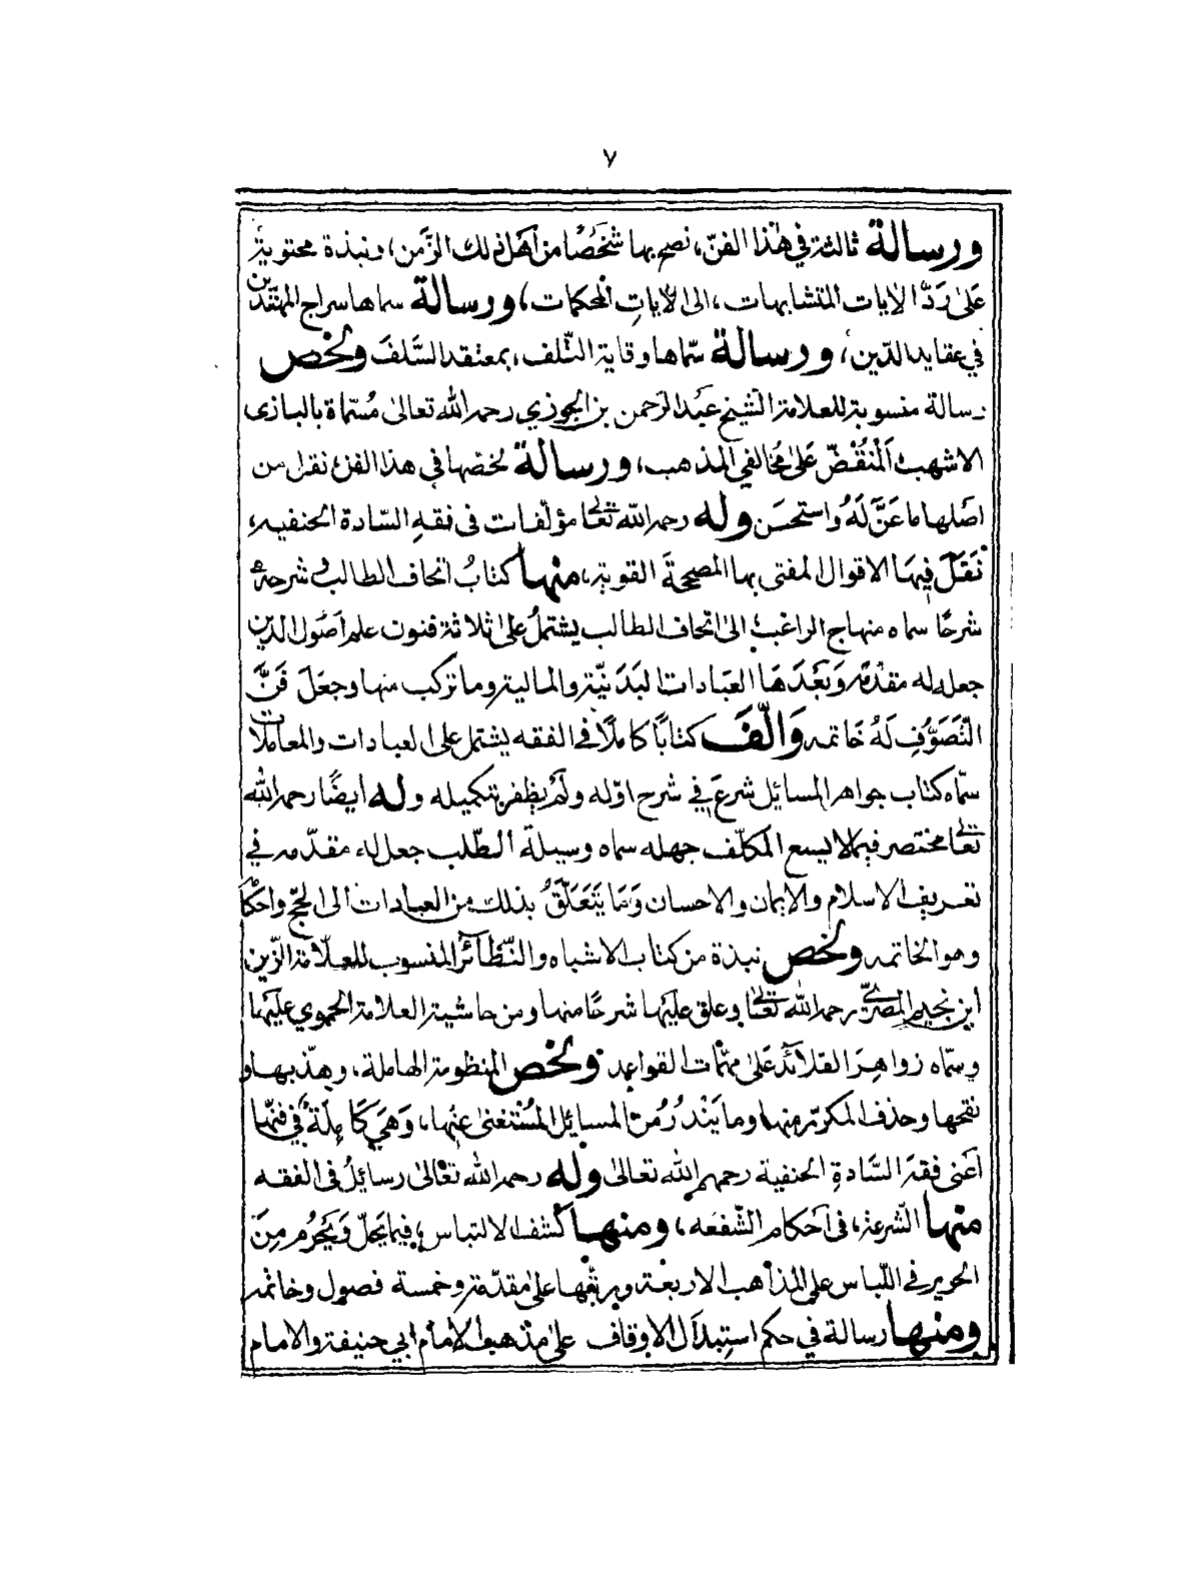 ٧
ورسالة ثالثة في هٰذا الفنّ، نصح بها شَخْصًا من أهل ذلك الزَّمن، ونبذة محتوية
عَلىٰ رَدّ الايات المتشابهات، الى الآياتِ المحكمات، ورسالة سماها سراج المهتدين
في عقايد الدّين، ورسالة سمّاها وقاية التّلف، بمعتقد السَّلفَ ولخص
رسالة منسوبة للعلامة الشيخ عبد الرحمن بن الجوزي رحمه الله تعالىٰ مُسمّاة بالبازى
الاشهب اَلْمُنْقَضّ عَلىٰ مُخالفي المذهب، ورسالة لخصها في هذا الفن نقل من
اصَلها ما عَنَّ لَهُ واستحسَن وله رحمه الله تعالىٰ مؤلّفات فى فقهِ السّادة الحنفيه،
نَقَلَ فِيهَا الاقوال المفتى بها المصححَةَ القوية، منها كتابُ اتحاف الطالب وشرحه
شرحًا سماه منهاج الراغب، الىٰ اتحاف الطالب يشتملُ علىٰ ثلاثة فنون علم اصَول الدين
جعله له مقدّمة وَبَعْدَهَا العبَادات البَدَنيّة والمالية وما تركب منها وجعَلَ فَنَّ
التَّصَوُّفِ لَهُ خَاتمه وَالّفَ كتابًا كاملًا في الفقه يشتمل على العبادات والمعاملات
سمّاه كتاب جواهر المسائل شرعَ في شرح اوّله ولم يظفر بتكميله وله ايضًا رحمه الله
تعالىٰ مختصر فيما لا يسع المكلّف جهله سماه وسيلة الطّلب جعل له مقدّمه في
تعريف الاسلام والايمان والاحسان وَمَا يَتَعَلَّقُ بذلك من العبادات الى الحجّ واحكا
وهو الخاتمه ولخص نبذة من كتاب الاشباه والنّظائر المنسوب للعلّامة الزّين
ابن نجيم المصريّ رحمه الله تعالىٰ وعلق عليَها شرحًا منها ومن حاشية العلامة الحموي عليَها
وسمّاه زواهِرَ القلائد عَلىٰ مهمّات القواعد ولخص المنظومة الهاملة، وهذّبها و
نقحها وحذف المكرّر منها وما يَنْدُرُ مِنَ المسايل المُسْتَغنىٰ عنْها، وَهيَ كَامِلَةٌ في فنّها
اَعنى فقهَ السَّادةِ الحنفية رحمهم الله تعالىٰ وله رحمه الله تعَالىٰ رسائلُ فى الفقه
منها الشّرعة، فى اَحكام الشّفعَه، ومنها كشف الالتباس، فيما يَحلّ وَيَحْرُم مِنَ
الحرير في اللّباس على المذاهب الاربعة ورتّبها علىٰ مقدّمة وخمسة فصول وخاتمه
ومنها رسالة في حكم استِبدَال الاوقاف علىٰ مذهب الامام ابي حنيفة والامام